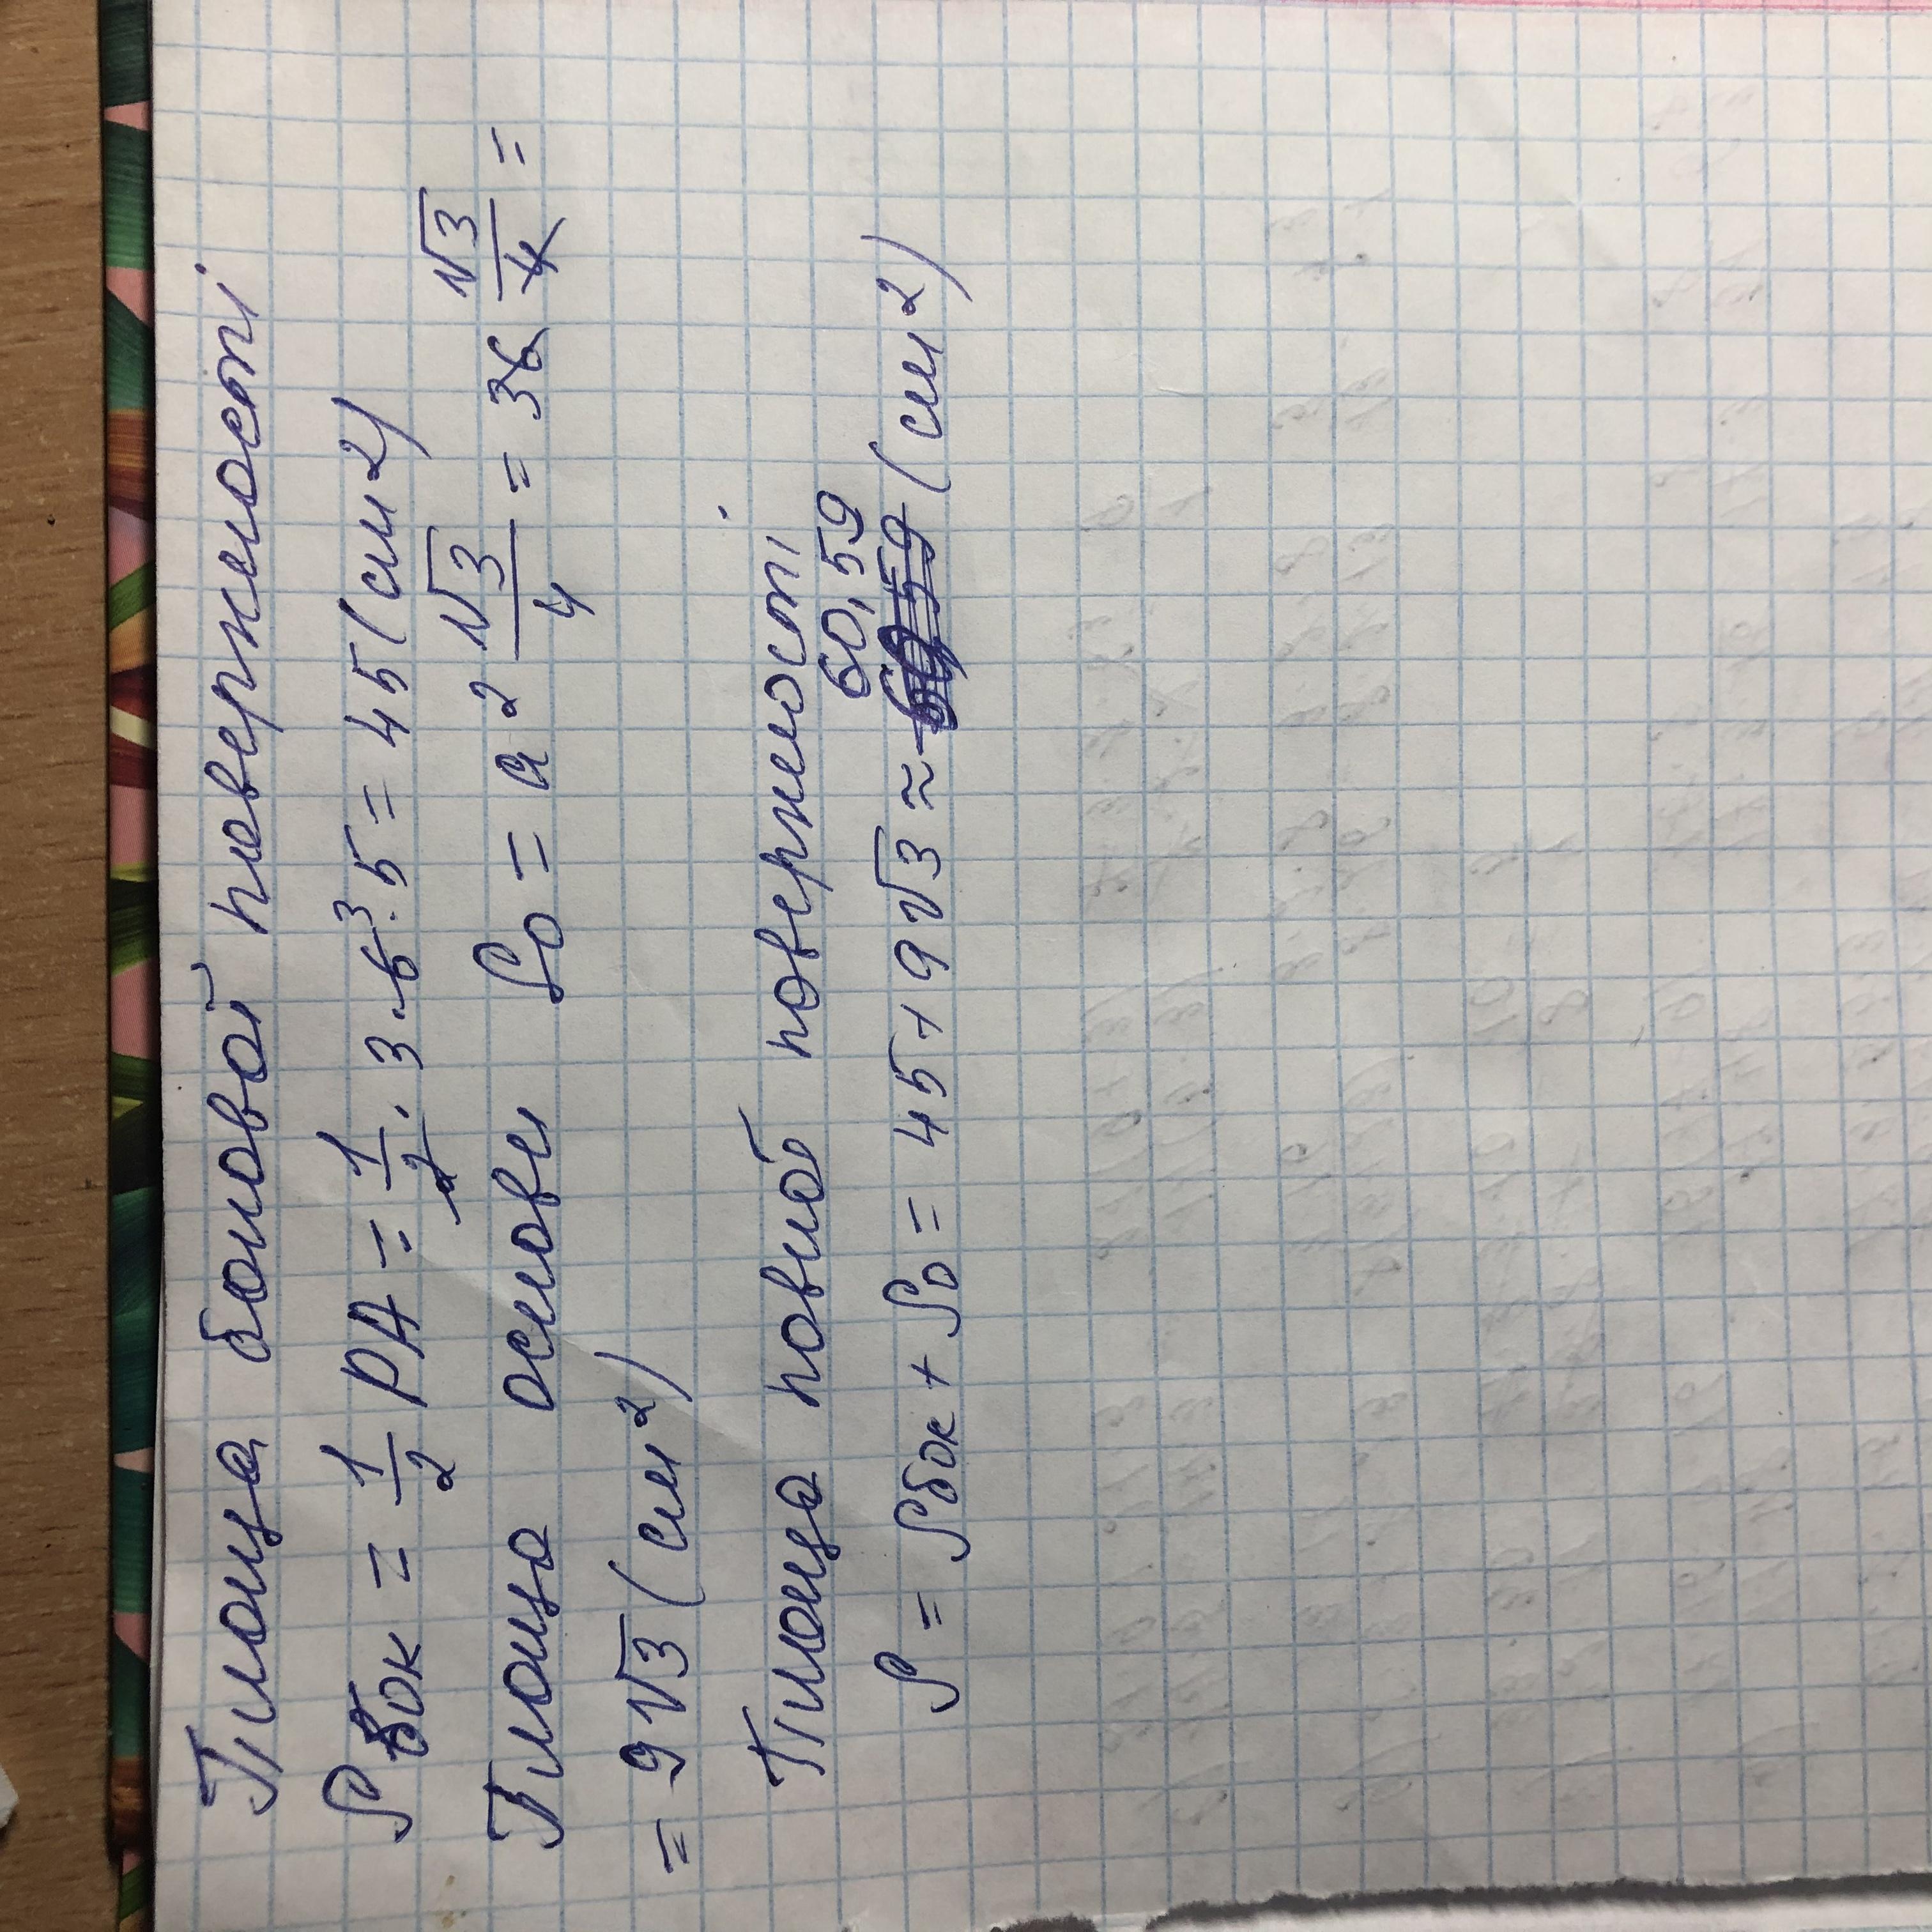 Площа бокової поверхності
Sбок = 1/2 PA = 1/2 · 3 · 6 3 · 5 = 45 (см2)
Площа основи So = a² √3/4 = 36 √3/4 =
= 9√3 (см²)
Площа повної поверхності
60,59
S = Sбок + So = 45 + 9√3 ≈ (см2)